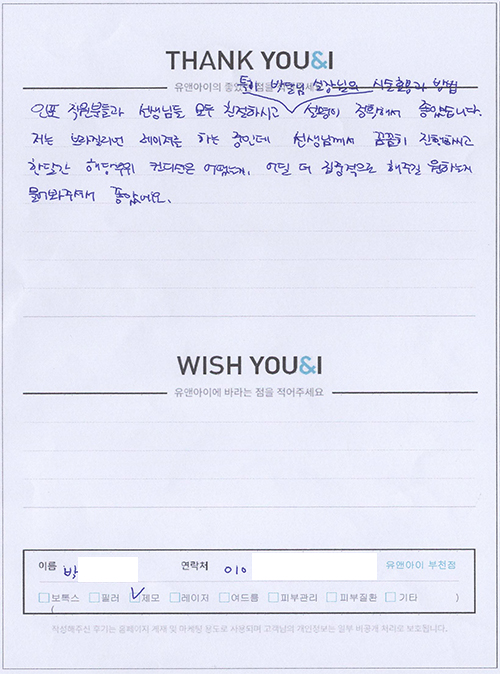 THANK YOU&I
유앤아이의 좋았던 점을 적어주세요
특히 박달님 실장님의 시술효용과 방법
인포 직원분들과 선생님들 모두 친절하시고 설명이 정확해서 좋았습니다.
저는 브라질리언 레이저를 하는 중인데 선생님께서 꼼꼼히 진행하시고
한달간 해당부위 컨디션은 어땠는지, 어딜 더 집중적으로 해주길 원하는지
물어봐주셔서 좋았어요.
WISH YOU&I
유앤아이에 바라는 점을 적어주세요
이름 박 연락처 010 유앤아이 부천점
보톡스 필러 제모 레이저 여드름 피부관리 피부질환 기타 )
(
작성해주신 후기는 홈페이지 게재 및 마케팅 용도로 사용되며 고객님의 개인정보는 일부 비공개 처리로 보호됩니다.